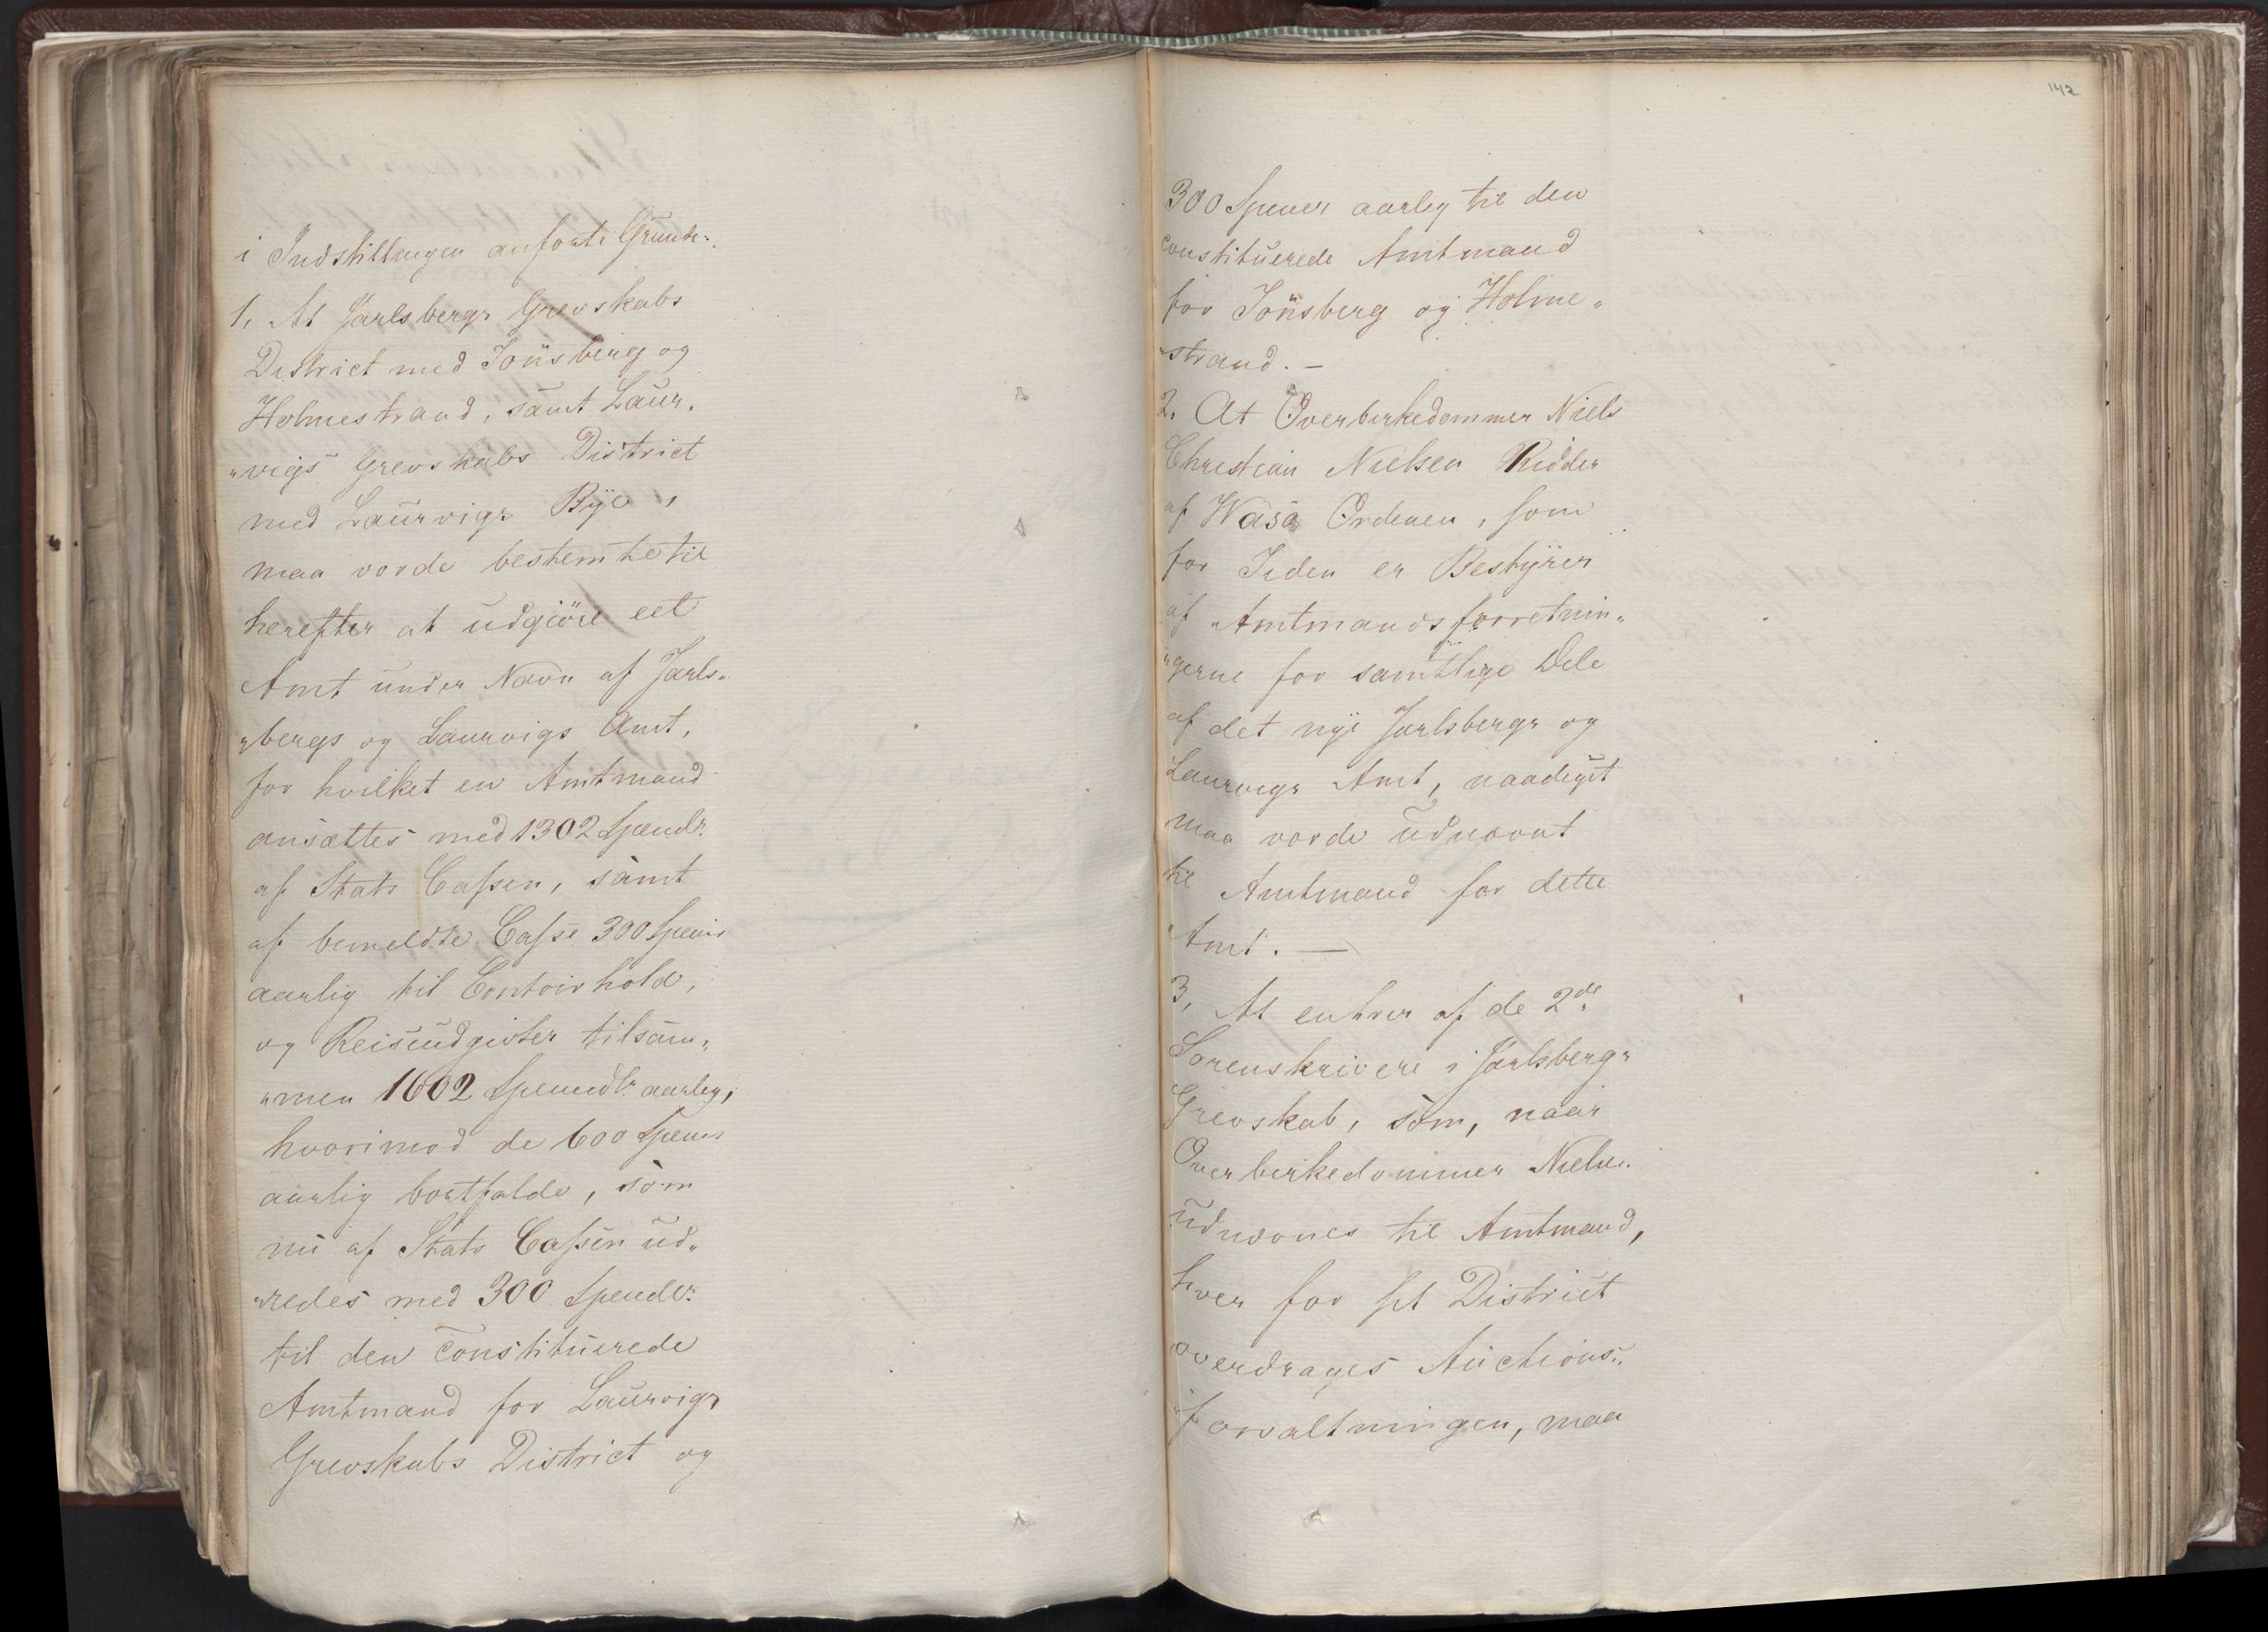 i Indstillingen anførte Grunde:
1, At Jarlsbergs Grevskabs
District med Tönsberg og
Holmestrand, samt Laur„
„vigs Grevskabs District
med Laurvigs Bÿe,
maa vorde bestemte til
herefter at udgiöre eet
Amt under Navn af Jarls„
„bergs og Laurvigs Amt,
for hvilket en Amtmand
ansættes med 1302 Speciedlr.
af Stats Cassen, samt
af bemeldte Casse 300 Specier
aarlig til Contoirhold,
og Reiseudgivter tilsam„
„men 1602 Speciedlr. aarlig,
hvorimod de 600 Specier
aarlig bortfalde, som
nu af Stats Cassen ud„
„redes med 300 Speciedlr.
til den constituerede
Amtmand for Laurvigs
Grevskabs District og
142
300 Specier aarlig til den
constituerede Amtmand
for Tönsberg og Holme„
„strand. —
2, At Overbirkedommer Niels
Christian Nielsen Ridder
af Wasa Ordenen, som
for Tiden er Bestÿrer
af Amtmandsforretnin„
„gerne for samtlige Dele
af det nÿe Jarlsbergs og
Laurvigs Amt, naadigst
maa vorde udnævnt
til Amtmand for dette
Amt. —
3, At enhver af de 2de
Sorenskrivere i Jarlsbergs
Grevskab, som, naar
Overbirkedommer Nielsen
udnævnes til Amtmand,
hver for sit District
overdrages Auctions„
„forvaltningen, maa